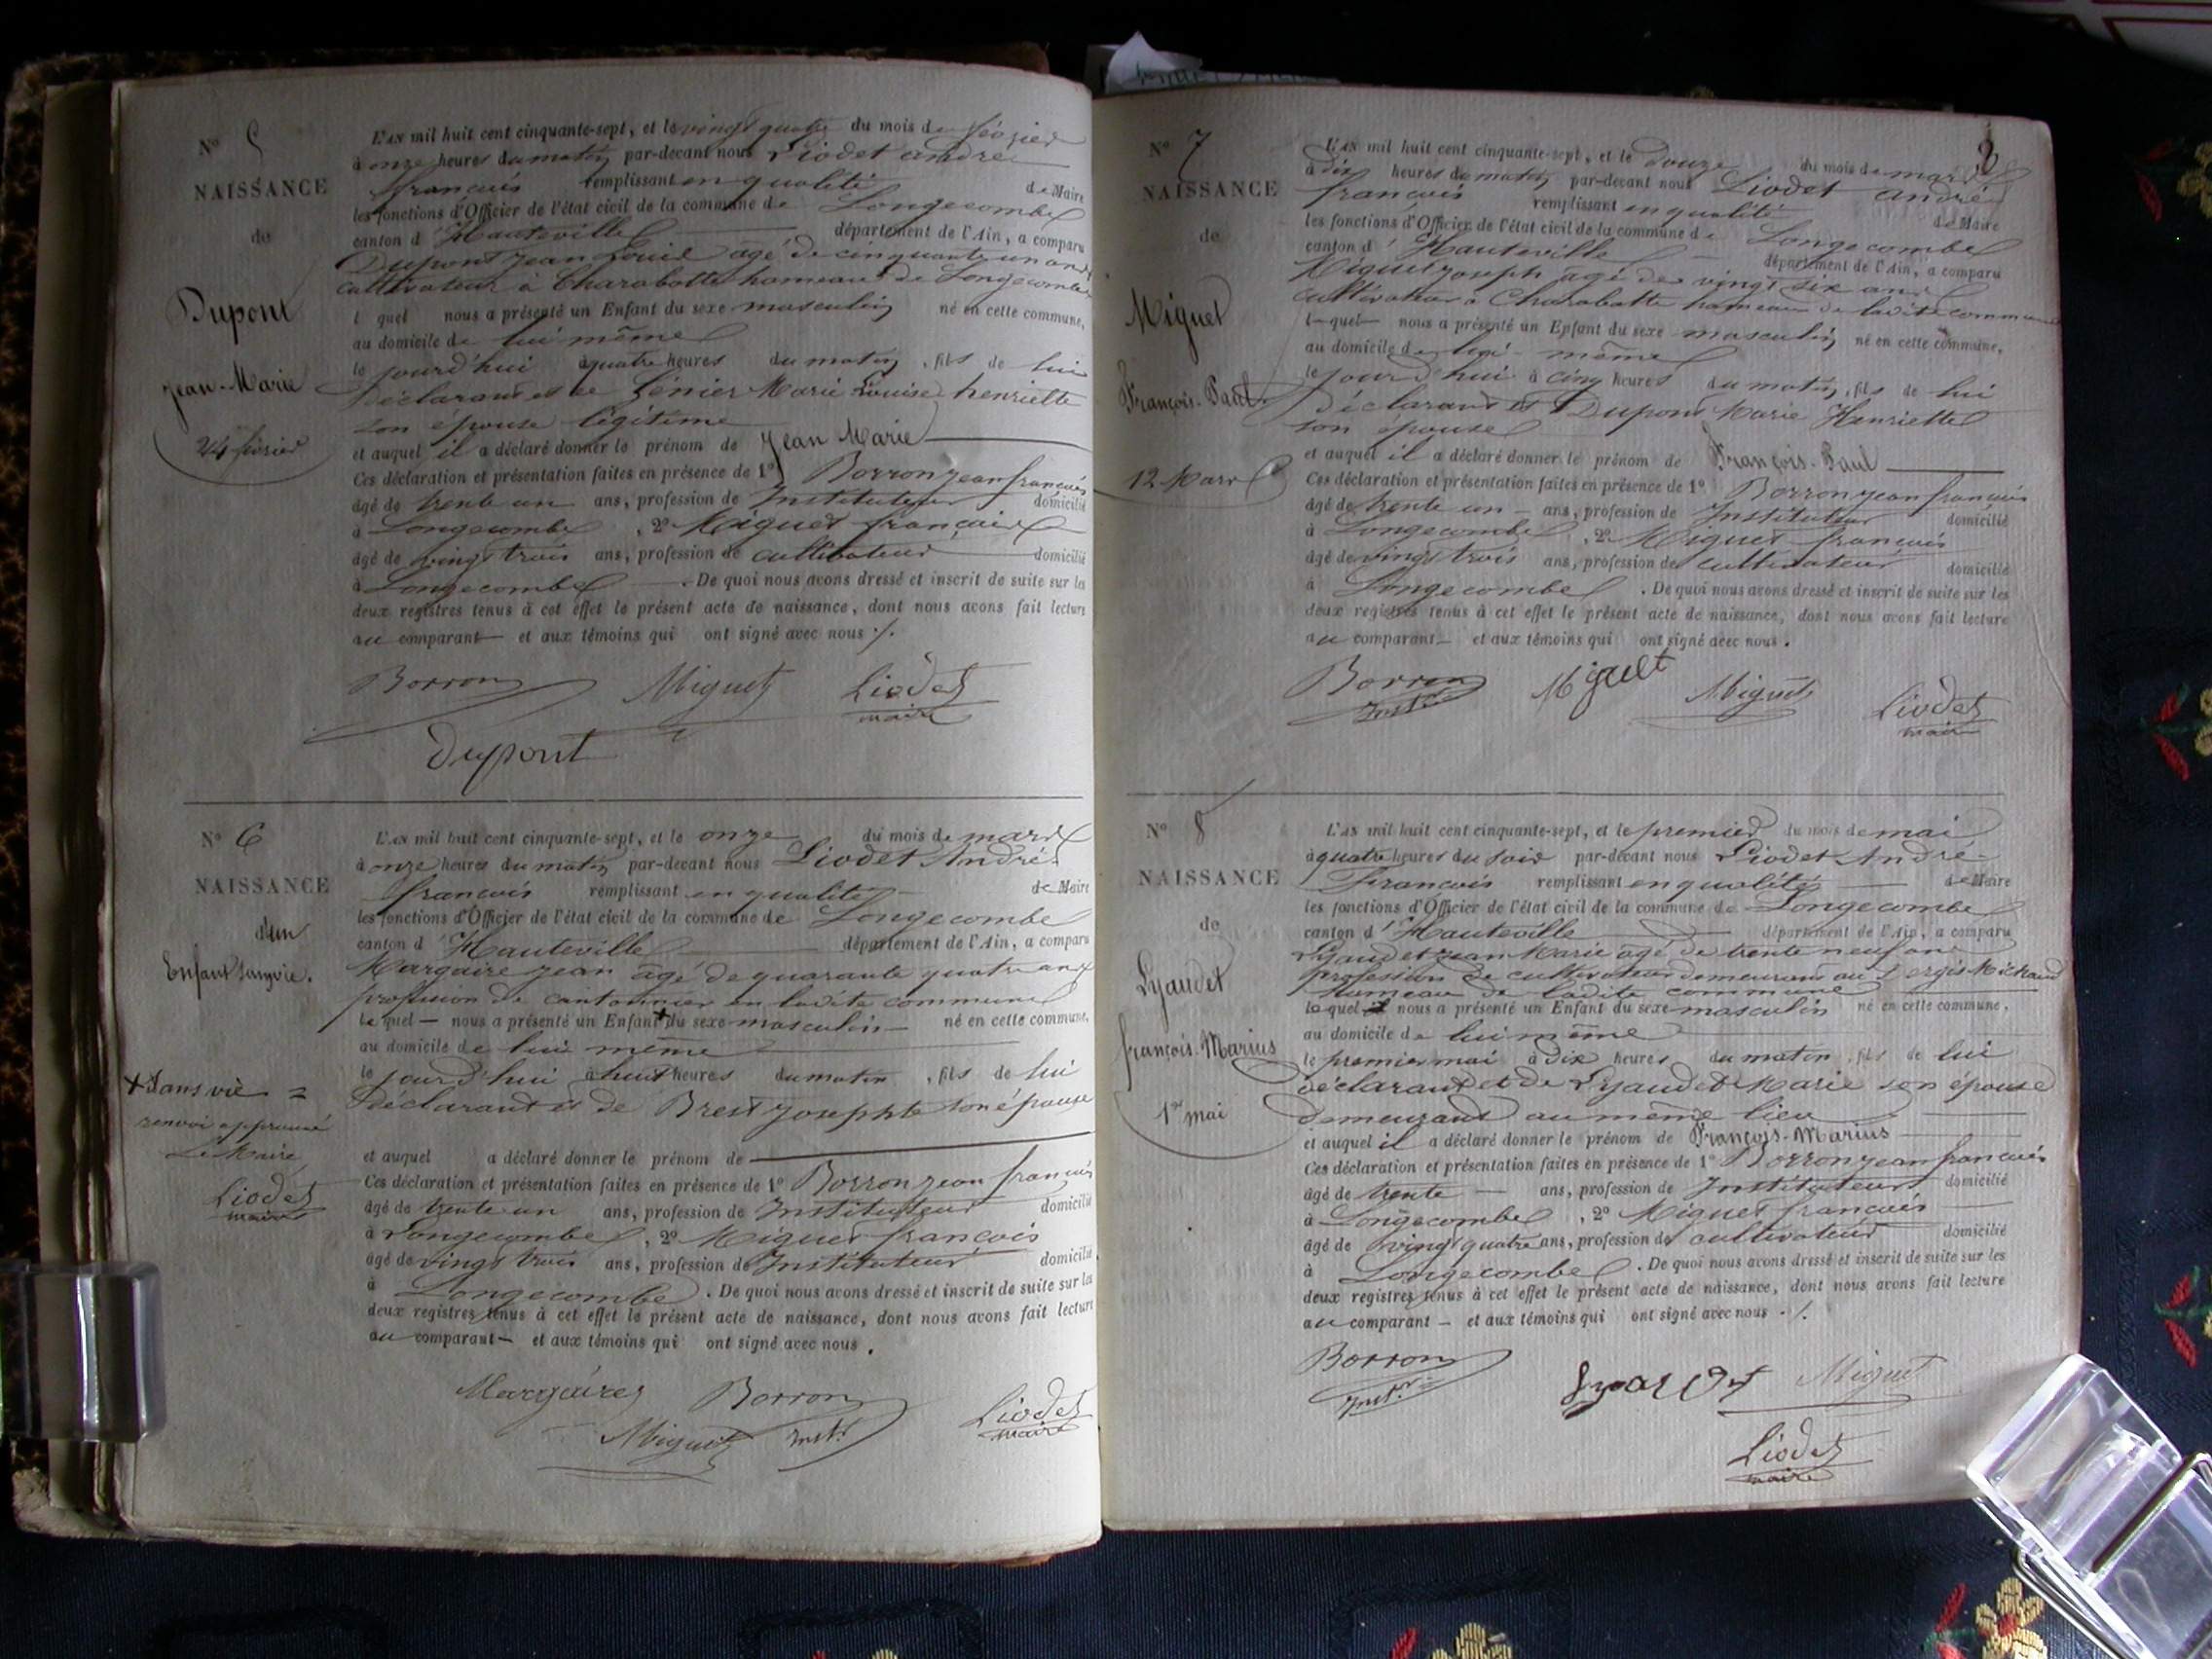 Nº 5
NAISSANCE
de
Dupont
Jean-Marie
24 février
L'AN mil huit cent cinquante-sept, et le vingt quatre du mois de février
à onze heures du matin par-devant nous Liodet andré
françois remplissant en qualité de Maire
les fonctions d'Officier de l'état civil de la commune de Longecombe
canton d'Hauteville département de l'Ain, a comparu
Dupont Jean Louis agé de cinquante un ans
cultivateur à Charabotte hameau de Longecombe
l quel nous a présenté un Enfant du sexe masculin né en cette commune,
au domicile de lui même
le jourd'hui à quatre heures du matin, fils de lui
déclarant et de Génier Marie Louise henriette
son épouse légitime
et auquel il a déclaré donner le prénom de Jean Marie
Ces déclaration et présentation faites en présence de 1º Borron jean françois
âgé de trente un ans, profession de Instituteur domicilié
à Longecombe, 2º Miguet françois
âgé de vingt trois ans, profession de cultivateur domicilié
à Longecombe. De quoi nous avons dressé et inscrit de suite sur les
deux registres tenus à cet effet le présent acte de naissance, dont nous avons fait lecture
au comparant et aux témoins qui ont signé avec nous ./.
Borron Miguet Liodet
maire
Dupont
Nº 6
NAISSANCE
d'un
Enfant sans vie.
+ Sans vie =
renvoi approuvé
Le Maire
Liodet
maire
L'AN mil huit cent cinquante-sept, et le onze du mois de mars
à onze heures du matin par-devant nous Liodet André
françois remplissant en qualité de Maire
les fonctions d'Officier de l'état civil de la commune de Longecombe
canton d'Hauteville département de l'Ain, a comparu
Margaire jean âgé de quarante quatre ans
profession de cantonnier en ladite commune
le quel nous a présenté un Enfant + du sexe masculin né en cette commune,
au domicile de lui même
le jourd'hui à huit heures du matin, fils de lui
déclarant et de Brest Josephte son épouse
et auquel a déclaré donner le prénom de
Ces déclaration et présentation faites en présence de 1º Borron jean françois
âgé de trente un ans, profession de Instituteur domicilié
à Longecombe, 2º Miguet françois
âgé de vingt trois ans, profession de Instituteur domicilié
à Longecombe. De quoi nous avons dressé et inscrit de suite sur les
deux registres tenus à cet effet le présent acte de naissance, dont nous avons fait lecture
au comparant et aux témoins qui ont signé avec nous.
Margaires Borron
Miguet Instr Liodet
maire
Nº 7
NAISSANCE
de
Miguet
François-Paul
12 Mars
L'AN mil huit cent cinquante-sept, et le Douze du mois de mars
à dix heures du matin par-devant nous Liodet andré
françois remplissant en qualité de Maire
les fonctions d'Officier de l'état civil de la commune de Longecombe
canton d'Hauteville département de l'Ain, a comparu
Miguet joseph agé de vingt six ans
cultivateur à Charabotte hameau de ladite commune
le quel nous a présenté un Enfant du sexe masculin né en cette commune,
au domicile de lui-même
le jourd'hui à cinq heures du matin, fils de lui
déclarant et Dupont Marie Henriette
son épouse
et auquel il a déclaré donner le prénom de François-Paul
Ces déclaration et présentation faites en présence de 1º Borron jean françois
âgé de trente un ans, profession de Instituteur domicilié
à Longecombe, 2º Miguet françois
âgé de vingt trois ans, profession de cultivateur domicilié
à Longecombe. De quoi nous avons dressé et inscrit de suite sur les
deux registres tenus à cet effet le présent acte de naissance, dont nous avons fait lecture
au comparant et aux témoins qui ont signé avec nous.
Borron Miguet Miguet Liodet
Instr maire
Nº 8
NAISSANCE
de
Lyaudet
françois-Marius
1er mai
L'AN mil huit cent cinquante-sept, et le premier du mois de mai
à quatre heures du soir par-devant nous Liodet André
François remplissant en qualité de Maire
les fonctions d'Officier de l'état civil de la commune de Longecombe
canton d'Hauteville département de l'Ain, a comparu
Lyaudet jean Marie âgé de trente neuf ans
profession de cultivateur demeurant au Michaud
hameau de ladite commune
le quel nous a présenté un Enfant du sexe masculin né en cette commune,
au domicile de lui même
le premier mai à dix heures du matin, fils de lui
déclarant et de Lyaudet Marie son épouse
demeurant au même lieu
et auquel il a déclaré donner le prénom de François-Marius
Ces déclaration et présentation faites en présence de 1º Borron jean françois
âgé de trente ans, profession de Instituteur domicilié
à Longecombe, 2º Miguet françois
âgé de vingt quatre ans, profession de cultivateur domicilié
à Longecombe. De quoi nous avons dressé et inscrit de suite sur les
deux registres tenus à cet effet le présent acte de naissance, dont nous avons fait lecture
au comparant et aux témoins qui ont signé avec nous ./.
Borron Miguet
Instr
Liodet
maire